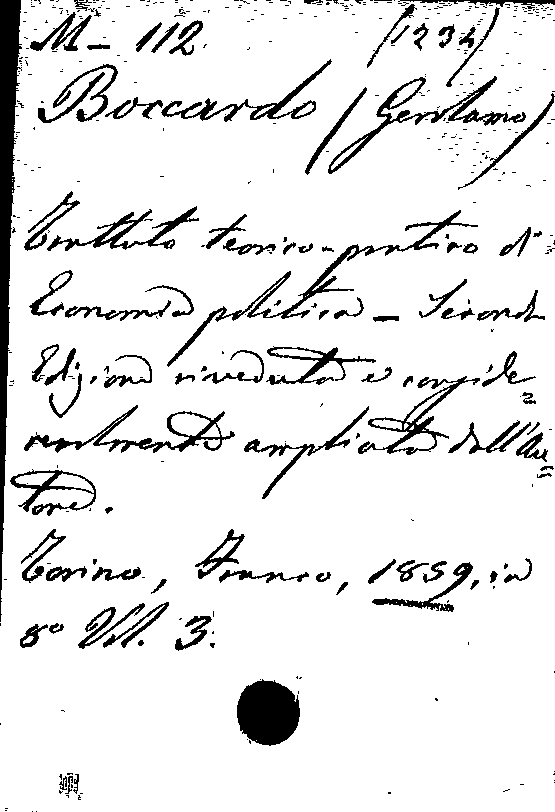 M – 112 (1234)
Boccardo (Gerolamo)
Trattato teorico-pratico di
Economia politica – Seconda
Edizione riveduta e conside=
revolmente ampliata dall'Au=
tore.
Torino, Franco, 1859, in
8º Vol. 3.